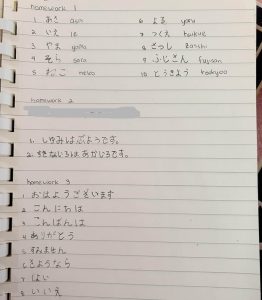 homework 1
1. あさ asa 6. よる yoru
2. いえ ie 7. つくえ
3. やま yama 8. ざっし zasshi
4. そら sora 9. ふじさん
5. ねこ neko 10. とうきょう
homework 2
1. しゅみはぶようです。
2. すきないろはあかじろです。
homework 3
1. おはようございます
2. こんにちは
3. こんばんは
4. ありがとう
5. すみません
6. さようなら
7. はい
8. いいえ